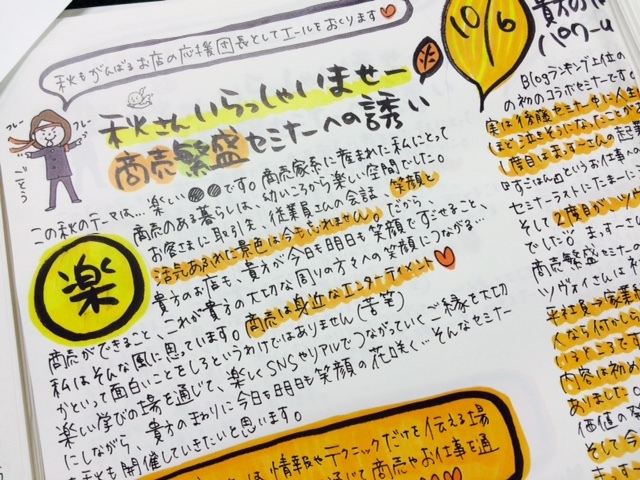 秋もがんばるお店の応援団長としてエールをおくります
フレー
フレー
秋さんいらっしゃいませー
商売繁盛セミナーへの誘い
この秋のテーマは…楽しい●●です。商売家系に産まれた私にとって
商売のある暮らしは、幼いころから楽しい空間でした。
お客さまに取引先、従業員さんの会話、笑顔と
活気あふれた景色は今も忘れません。だから、
貴方のお店も、貴方が今日も明日も笑顔ですごせること、
楽
商売ができること、これが貴方の大切な周りの方々への笑顔につながる…
私はそんな風に思っています。商売は身近なエンターテイメント
かといって面白いことをしろというわけではありません(苦笑)
楽しい学びの場を通じて、楽しくSNSやリアルでつながっていくご縁を大切
にしながら、貴方のまわりに今日も明日も笑顔の花咲く…そんなセミナー
を秋も開催していきたいと思います。
情報やテクニックだけを伝える場
通じて商売やお仕事を通
10/6
貴方の
パワー
Blogランキング上位の
の初のコラボセミナーです
実は後半セミナー中に人生
ほど泣きそうになったことが
度目はますーさんの起
「すごはん」というお仕事への
セミナーラストにたまーに
そして2度目が、ツ
でした。ますー
商売繁盛セミナー
ツヴェイさんは
平社員で家業
人なら何かし
いるところです
内容は初め
ありました。
価値の
そして今